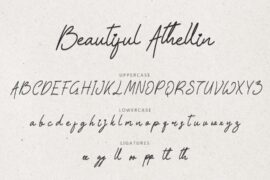 Beautiful Athellin
UPPERCASE
ABCDEFGHIJKLMNOPQRSTUVWXYZ
LOWERCASE
abcdefghijklmnopqrstuvwxyz
LIGATURES
gg ll pp tt th